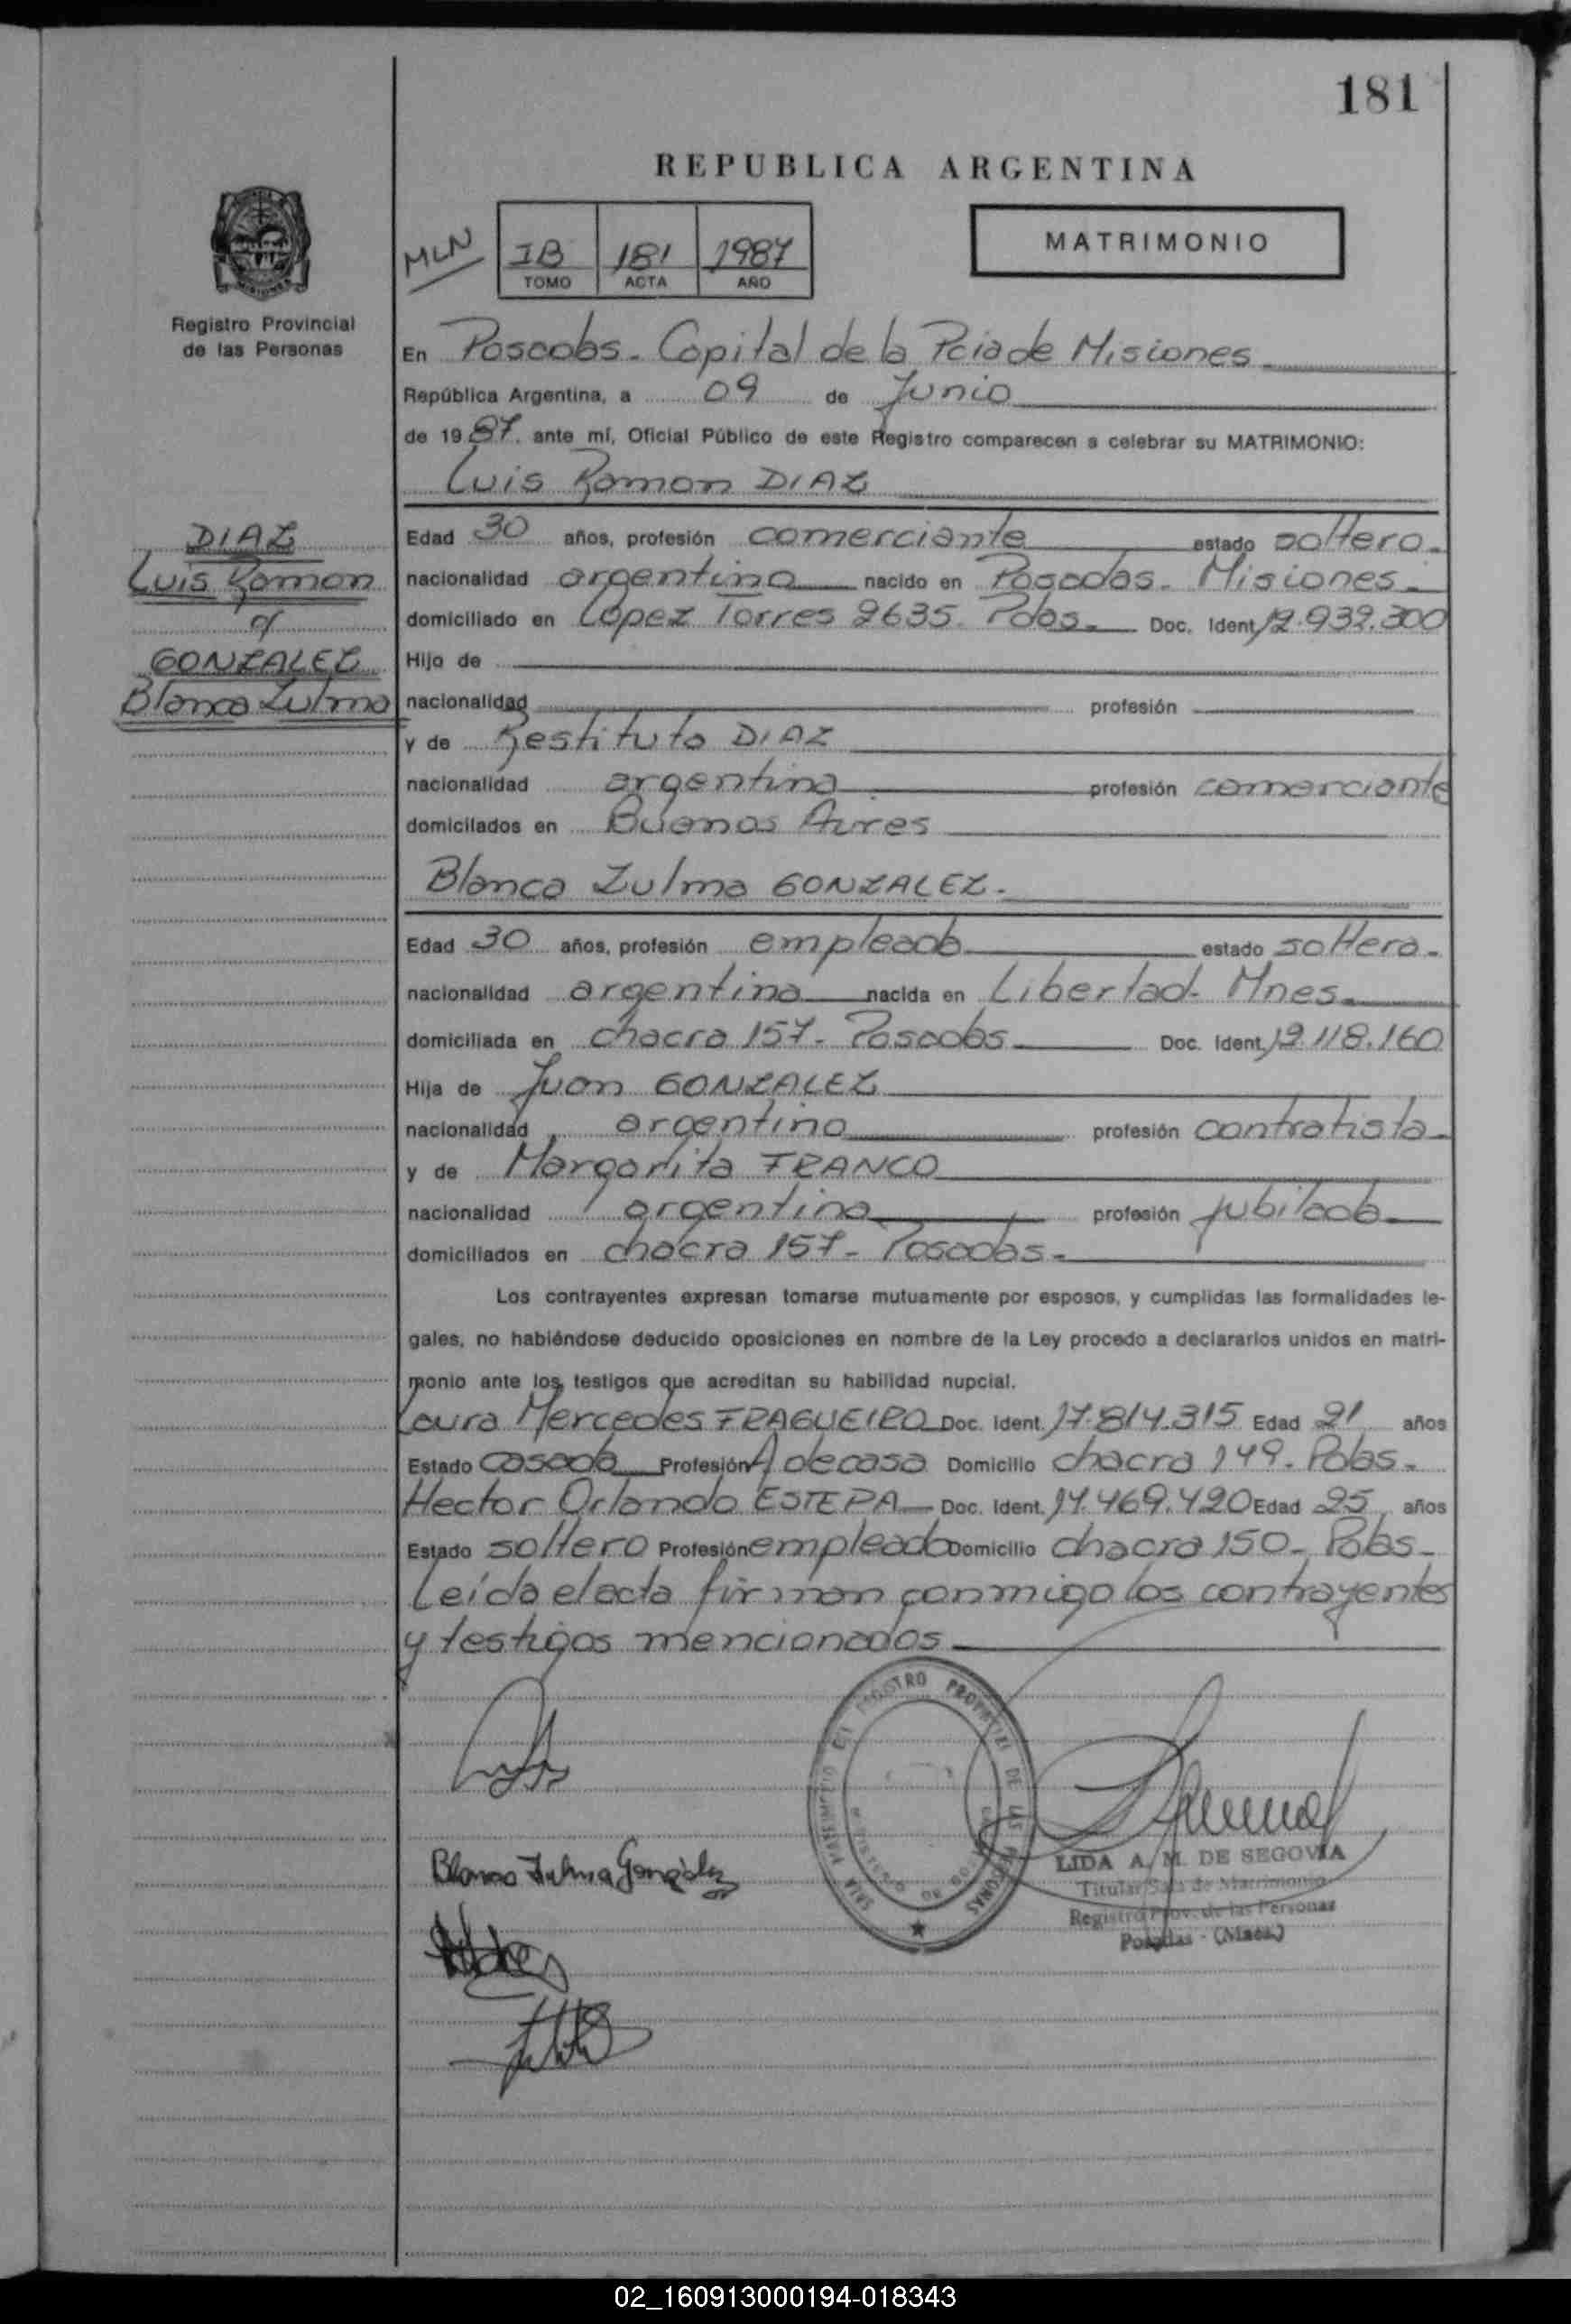 181
REPUBLICA ARGENTINA
MLN
IB 181 1987
TOMO ACTA AÑO
MATRIMONIO
Registro Provincial
de las Personas
En Posadas - Capital de la Pcia de Misiones
República Argentina, a 09 de Junio
de 1987. ante mí, Oficial Público de este Registro comparecen a celebrar su MATRIMONIO:
Luis Ramon DIAZ
DIAZ
Luis Ramon
c/
GONZALEZ
Blanca Zulma
Edad 30 años, profesión comerciante estado soltero.
nacionalidad argentina nacido en Posadas - Misiones -
domiciliado en Lopez Torres 2635. Pdas. Doc. Ident. 12.932.300
Hijo de
nacionalidad profesión
y de Restituto DIAZ
nacionalidad argentina profesión comerciante
domicilados en Buenos Aires
Blanca Zulma GONZALEZ.
Edad 30 años, profesión empleada estado soltera.
nacionalidad argentina nacida en Libertad - Mnes.
domiciliada en chacra 157 - Posadas Doc. Ident. 12.118.160
Hija de Juan GONZALEZ
nacionalidad argentino profesión contratista
y de Margarita FRANCO
nacionalidad argentina profesión jubilada
domiciliados en chacra 157 - Posadas -
Los contrayentes expresan tomarse mutuamente por esposos, y cumplidas las formalidades le-
gales, no habiéndose deducido oposiciones en nombre de la Ley procedo a declararlos unidos en matri-
monio ante los testigos que acreditan su habilidad nupcial.
Laura Mercedes FRAGUEIRO Doc. Ident. 17.814.315 Edad 21 años
Estado casada Profesión A de casa Domicilio chacra 149. Pdas.
Hector Orlando ESTEPA Doc. Ident. 14.469.420 Edad 25 años
Estado soltero Profesión empleado Domicilio chacra 150 - Pdas -
Leída el acta firman conmigo los contrayentes
y testigos mencionados
REGISTRO PROVINCIAL DE LAS PERSONAS
Blanca Zulma González
LIDA A. M. DE SEGOVIA
Titular Sala de Matrimonio
Registro Prov. de las Personas
Posadas - (Mnes.)
02_160913000194-018343